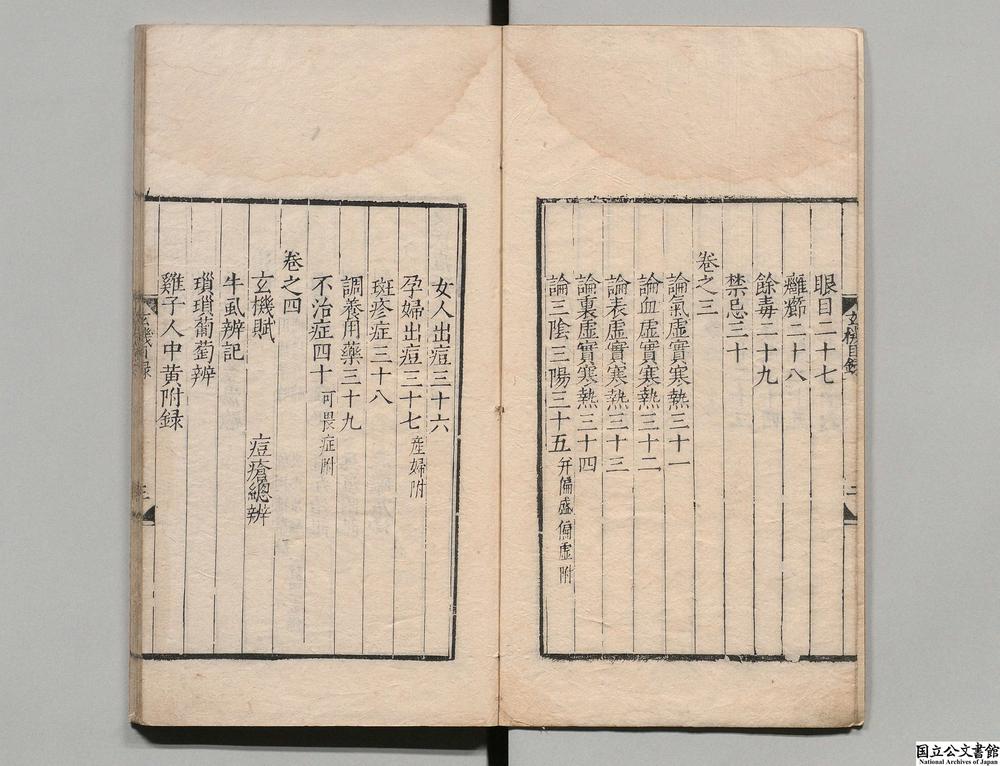 眼目二十七
癰癤二十八
餘毒二十九
禁忌三十
卷之三
論氣虛實寒熱三十一
論血虛實寒熱三十二
論表虛實寒熱三十三
論裏虛實寒熱三十四
論三陰三陽三十五 弁偏盛偏虛附
女人出痘三十六
孕婦出痘三十七 産婦附
斑疹症三十八
調養用藥三十九
不治症四十 可畏症附
卷之四
玄機賦 痘瘡總辨
牛虱辨記
瑣瑣葡萄辨
雞子人中黃附録
国立公文書館
National Archives of Japan